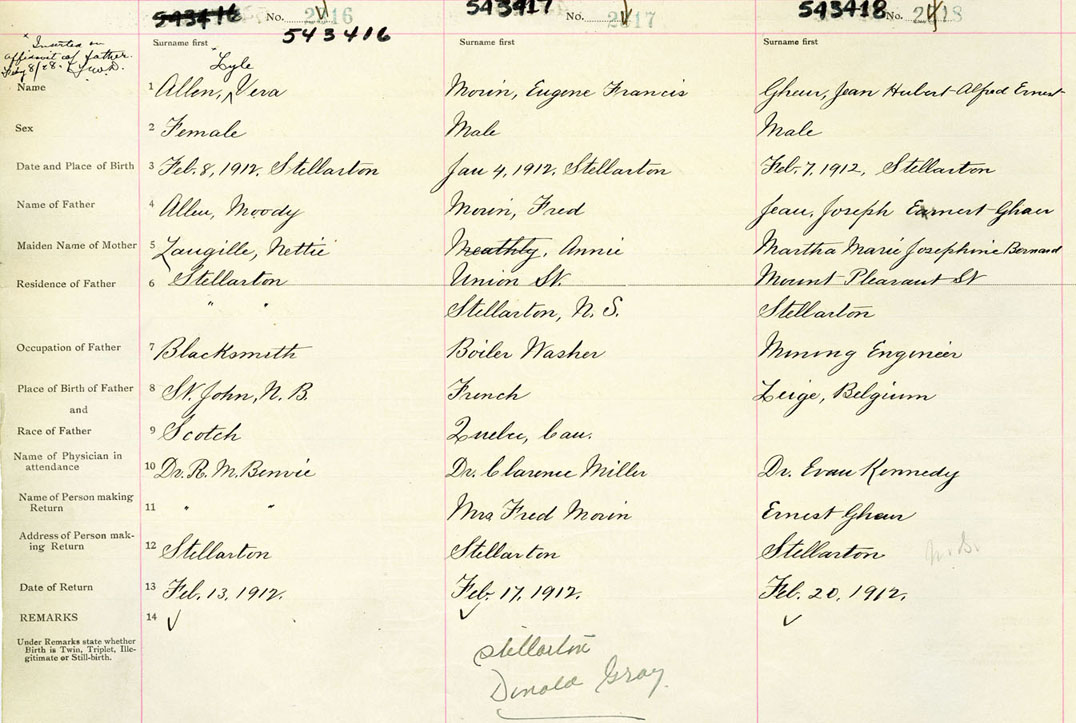 543416 No. 2016 543417 No. 2017 543418 No. 2018
543416
Surname first Surname first Surname first
Inserted on
affidavit of father.
Lyle
Name 1 Allen, Vera Morin, Eugene Francis Ghaur, Jean Hubert Alfred Ernest
Sex 2 Female Male Male
Date and Place of Birth 3 Feb. 8, 1912, Stellarton Jan 4, 1912, Stellarton Feb. 7, 1912, Stellarton
Name of Father 4 Allen, Moody Morin, Fred Jean, Joseph Earnest Ghaur
Maiden Name of Mother 5 Langille, Nettie Meathly, Annie Martha Marie Josephine Bernard
Residence of Father 6 Stellarton Union St. Mount Pleasant St
" " Stellarton, N. S. Stellarton
Occupation of Father 7 Blacksmith Boiler Washer Mining Engineer
Place of Birth of Father 8 St. John, N. B. French Leige, Belgium
and
Race of Father 9 Scotch Quebec, Can.
Name of Physician in
attendance 10 Dr. R. M. Benvie Dr. Clarence Miller Dr. Evan Kennedy
Name of Person making
Return 11 " " Mrs Fred Morin Ernest Ghaur
Address of Person mak-
ing Return 12 Stellarton Stellarton Stellarton
Date of Return 13 Feb. 13, 1912. Feb. 17, 1912. Feb. 20, 1912.
REMARKS 14
Under Remarks state whether
Birth is Twin, Triplet, Ille-
gitimate or Still-birth.
Stellarton
Donald Gray